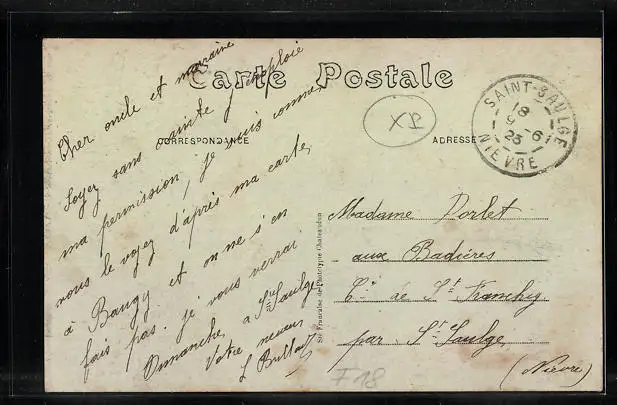 Carte Postale
CORRESPONDANCE
ADRESSE
Cher oncle et marraine
Soyez sans crainte j'emploie
ma permission, je suis comme
vous le voyez d'après ma carte,
à Baugy et on ne s'en
fais pas. je vous verrai
Dimanche à St Saulge
Votre neveu
L
SAINT-SAULGE
18
9 -6
23
NIEVRE
Sté Française de Phototypie Chateaudun
Madame Dorlet
aux Badières
Cne de St Franchy
par St Saulge
(Nièvre)
F18